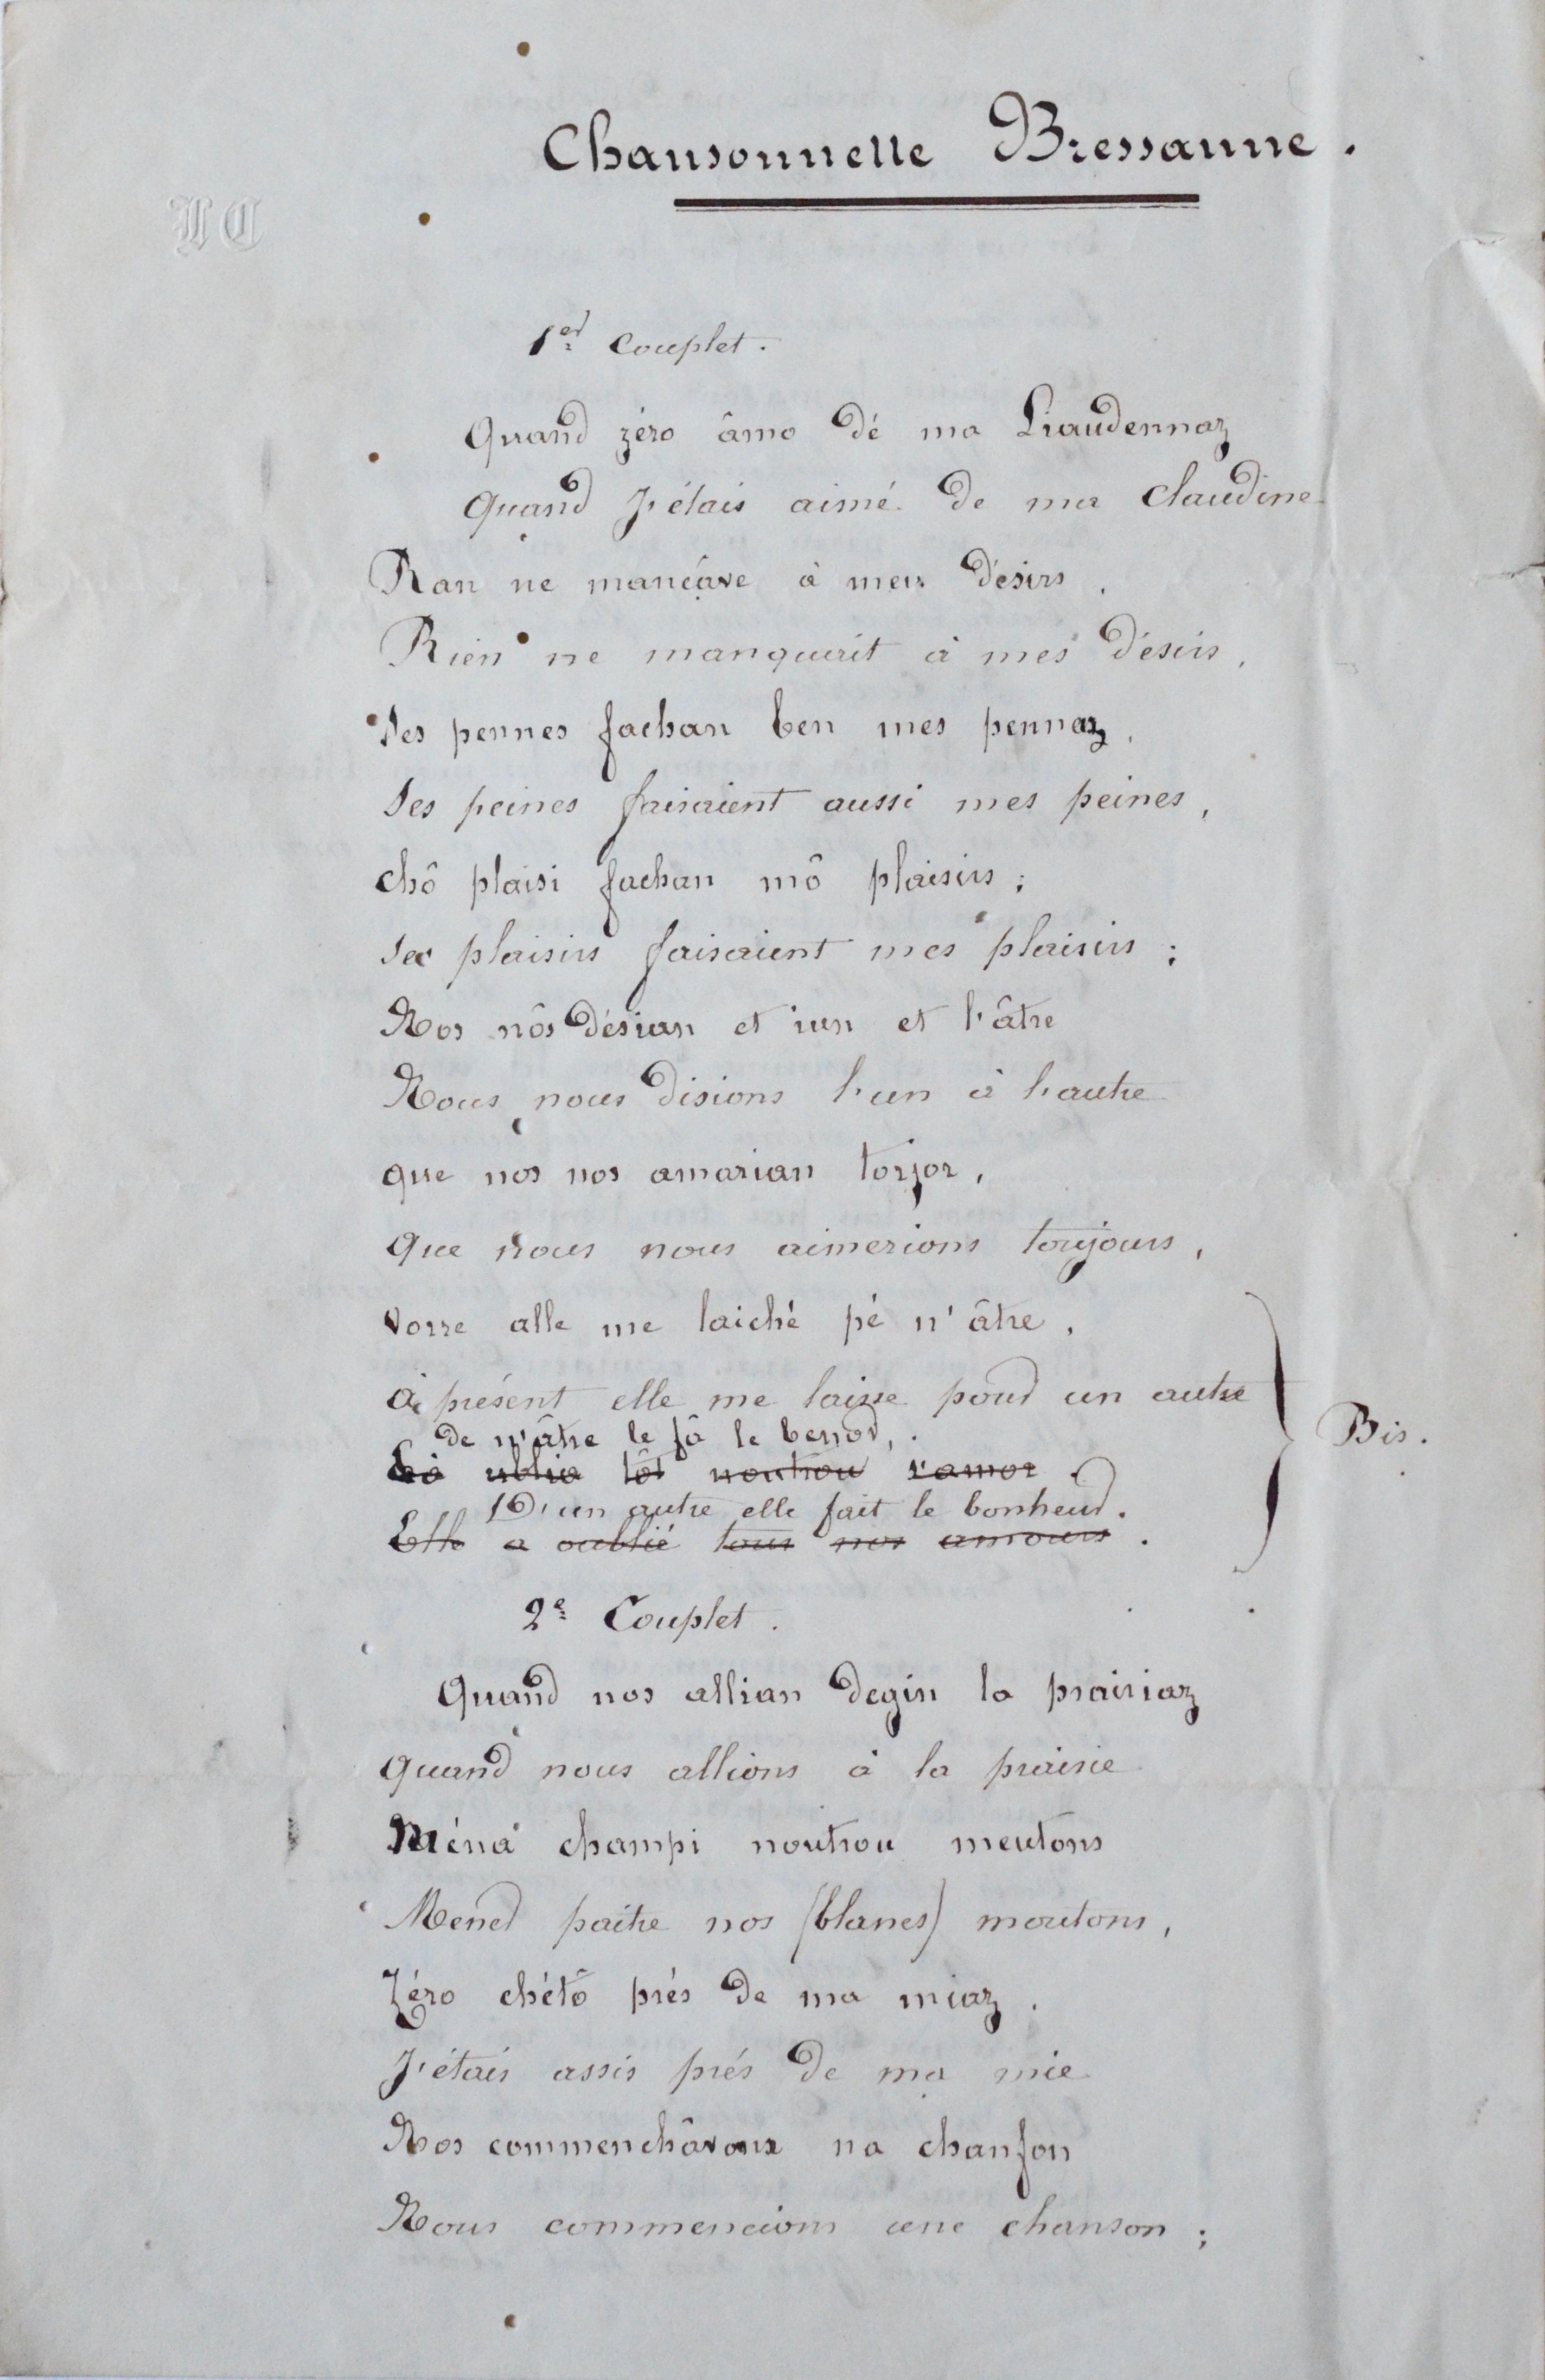 Chansonnette Bressanne.
1er Couplet.
Quand zéro âmo dé ma Liaudennaz
Quand j'étais aimé de ma Claudine
Ran ne mancâve à meis désirs,
Rien ne manquait à mes désirs,
Ses pennes fachan ben mes pennaz,
Ses peines faisaient aussi mes peines,
chô plaisi fachan mô plaisirs;
Ses plaisirs faisaient mes plaisirs;
Nos nôs désian et iun et l'âtre
Nous nous disions l'un à l'autre
que nos nos amarian torjor,
Que nous nous aimerions toujours,
Vorre alle me laiché pé n'âtre,
à présent elle me laisse pour un autre
Bis.
de n'âtre le fâ le benor,
ublia tôt noutrou z'amor.
D'un autre elle fait le bonheur.
Elle a oublié tous nos amours.
2e Couplet.
Quand nos allian degin la prairiaz
Quand nous allions à la prairie
Ména champi noutrou meutons
Mener paitre nos (blancs) moutons,
Zéro chétô prés de ma miaz,
J'étais assis prés de ma mie
Nos commenchâvons na chanfon
Nous commencions une chanson;